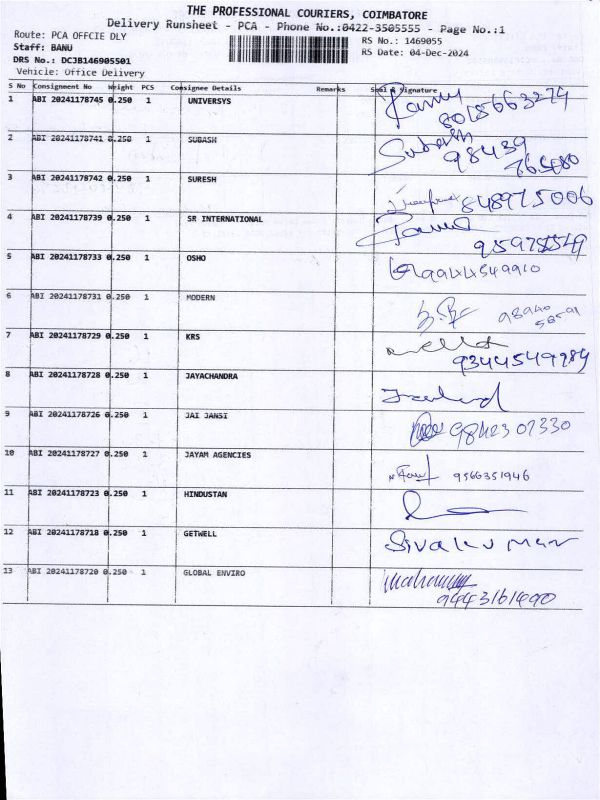 THE PROFESSIONAL COURIERS, COIMBATORE
Delivery Runsheet - PCA - Phone No.:0422-3505555 - Page No.:1
Route: PCA OFFCIE DLY
RS No.: 1469055
Staff: BANU
RS Date: 04-Dec-2024
DRS No.: DCJB146905501
Vehicle: Office Delivery
S No Consignment No Weight PCS Consignee Details Remarks Seal & Signature
1 ABI 20241178745 0.250 1 UNIVERSYS
8015663279
2 ABI 20241178741 0.250 1 SUBASH Subash
98439
3 ABI 20241178742 0.250 1 SURESH
848975006
4 ABI 20241178739 0.250 1 SR INTERNATIONAL
5 ABI 20241178733 0.250 1 OSHO 9944549910
6 ABI 20241178731 0.250 1 MODERN
7 ABI 20241178729 0.250 1 KRS
8 ABI 20241178728 0.250 1 JAYACHANDRA
9 ABI 20241178726 0.250 1 JAI JANSI 9842307330
10 ABI 20241178727 0.250 1 JAYAM AGENCIES 9566351946
11 ABI 20241178723 0.250 1 HINDUSTAN
12 ABI 20241178718 0.250 1 GETWELL Sivakumar
13 ABI 20241178720 0.250 1 GLOBAL ENVIRO
9443161490